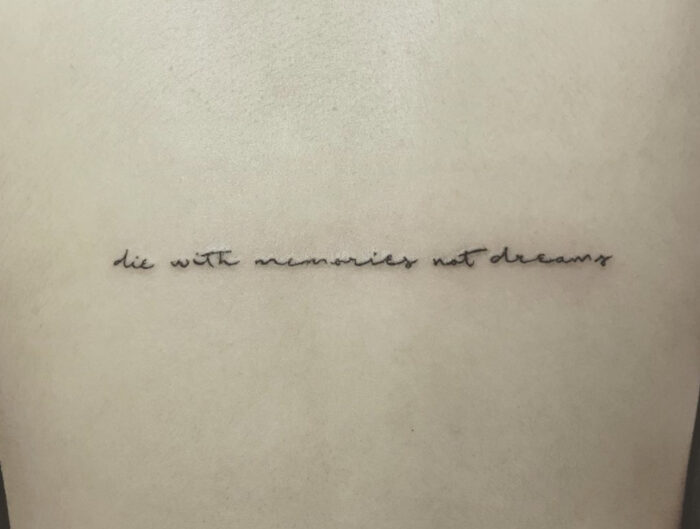 die with memories not dreams